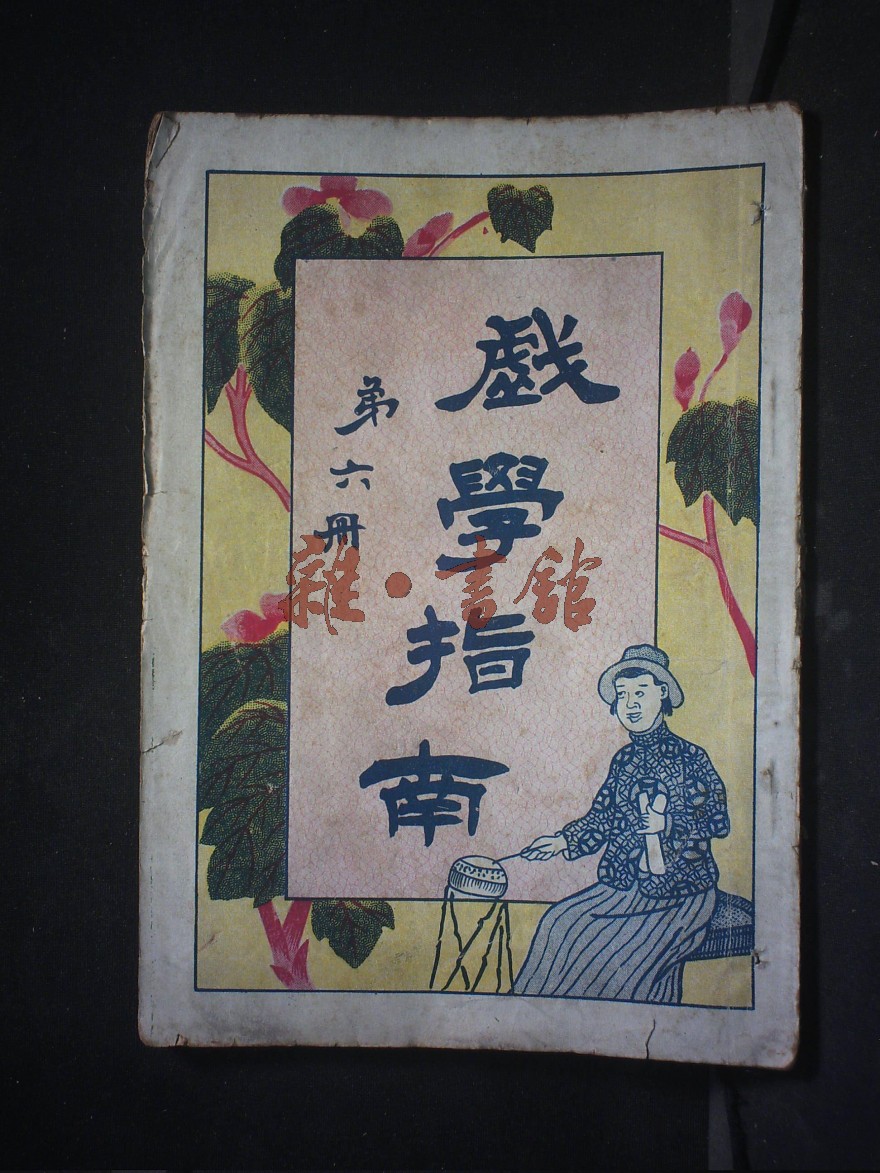 戲學指南
第六冊
雜·書舘